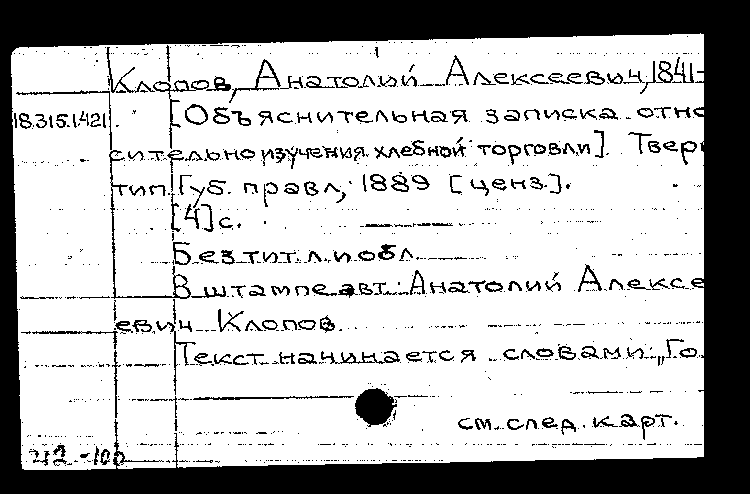 Клопов, Анатолий Алексеевич, 1841-
18.315.1421. [Объяснительная записка отно
сительно изучения хлебной торговли]. Твер
тип. Губ. правл., 1889 [ценз.].
[4] с.
Без тит. л. и обл.
В штампе авт.: Анатолий Алексе
евич Клопов.
Текст начинается словами: „Го
см. след. карт.